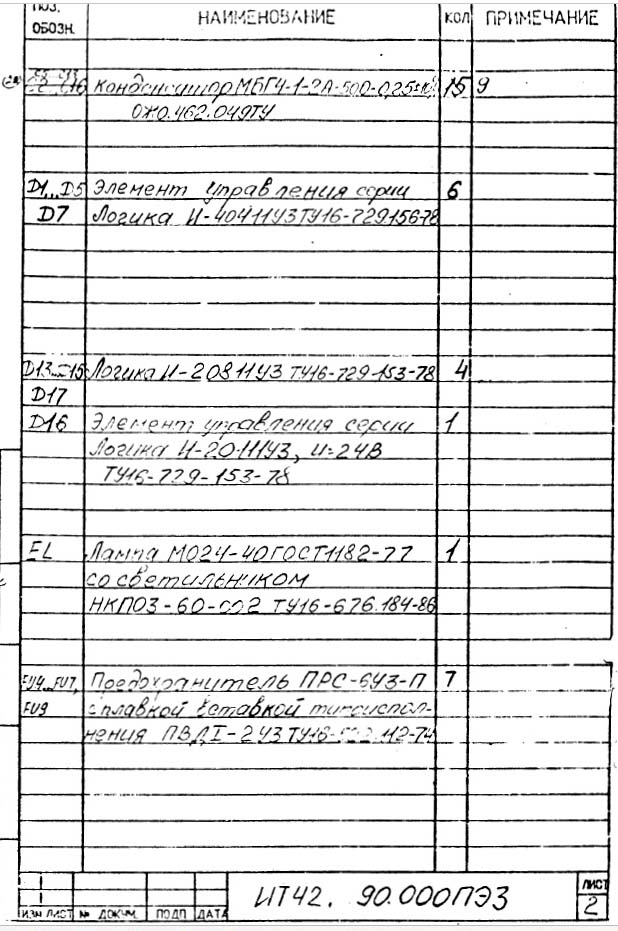 ПОЗ. ОБОЗН. НАИМЕНОВАНИЕ КОЛ ПРИМЕЧАНИЕ
Конденсатор МБГЧ-1-2А-500-0,25±10% 15 9
ОЖ0.462.049ТУ
D1...D5 Элемент управления серии 6
D7 Логика И-40411УЗ ТУ16-729.156-78
D13...D15 Логика И-20811УЗ ТУ16-729-153-78 4
D17
D16 Элемент управления серии 1
Логика И-20111УЗ, U=24В
ТУ16-729-153-78
EL Лампа МО24-40 ГОСТ1182-77 1
со светильником
НКП03-60-002 ТУ16-676.184-86
FU4...FU7, Предохранитель ПРС-6УЗ-П 7
FU9 с плавкой вставкой типоиспол-
нения ПВДI-2УЗ ТУ16-522.112-74
ИТ42. 90.000ПЭЗ ЛИСТ
ИЗМ ЛИСТ № ДОКУМ. ПОДП ДАТА 2